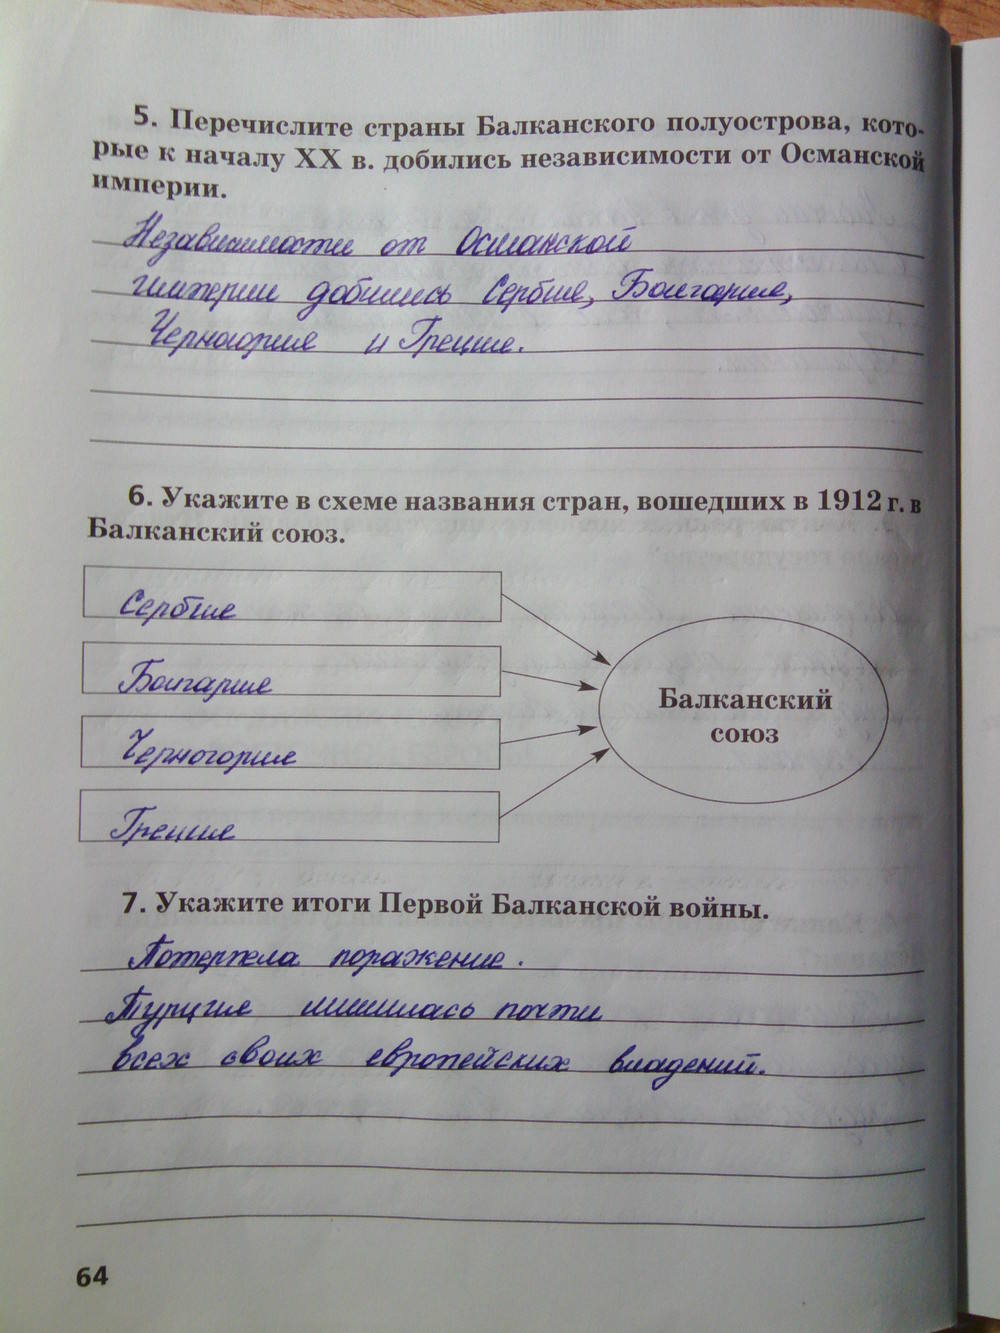 5. Перечислите страны Балканского полуострова, кото-
рые к началу XX в. добились независимости от Османской
империи.
Независимости от Османской
империи добились Сербия, Болгария,
Черногория и Греция.
6. Укажите в схеме названия стран, вошедших в 1912 г. в
Балканский союз.
Сербия
Болгария
Черногория
Греция
Балканский
союз
7. Укажите итоги Первой Балканской войны.
Потерпела поражение.
Турция лишилась почти
всех своих европейских владений.
64